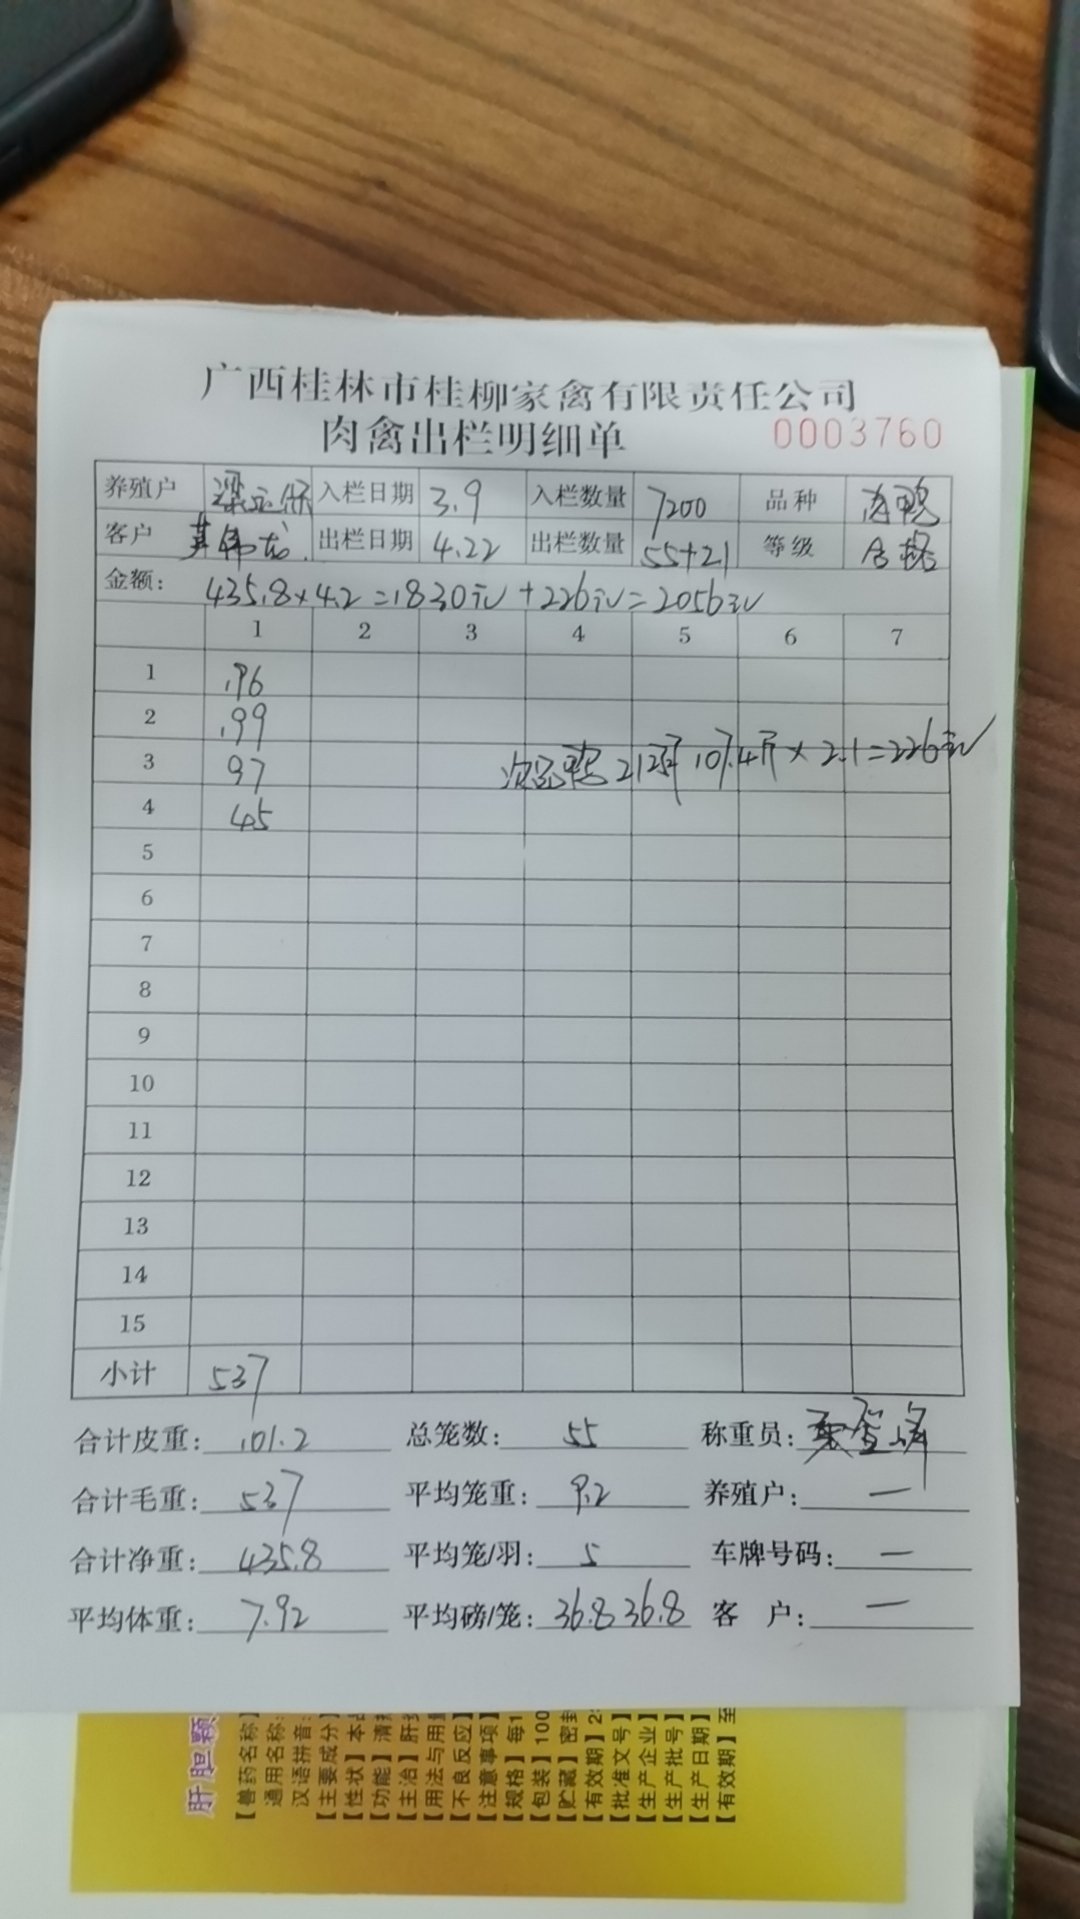 广西桂林市桂柳家禽有限责任公司
肉禽出栏明细单 0003760
养殖户 入栏日期 3.9 入栏数量 7200 品种
客户 出栏日期 4.22 出栏数量 55+21 等级 合格
金额: 435.8×4.2=1830元+226元=2056元
1 2 3 4 5 6 7
1 196
2 199
3 97
4 45
次品鸭21只 107.4斤×2.1=226元
5
6
7
8
9
10
11
12
13
14
15
小计 537
合计皮重: 101.2 总笼数: 55 称重员:
合计毛重: 537 平均笼重: 9.2 养殖户: 一
合计净重: 435.8 平均笼/羽: 5 车牌号码: 一
平均体重: 7.92 平均磅/笼: 36.8 36.8 客 户: 一
肝胆颗
【兽药名称】
通用名称:
汉语拼音:
【主要成分】
【性状】本
【功能】清
【主治】肝
【用法与用量
【不良反应】
【注意事项】
【规格】每1
【包装】100
【贮藏】密封
【有效期】2
【批准文号】
【生产企业】
【生产批号】
【生产日期】
【有效期】至